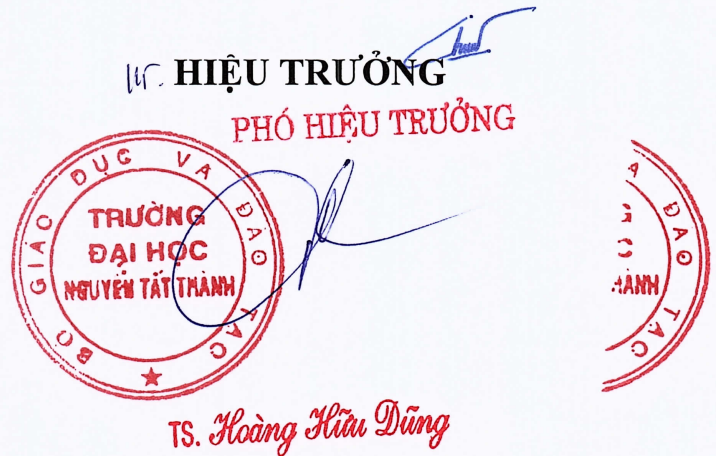 KT. HIỆU TRƯỞNG
PHÓ HIỆU TRƯỞNG
BỘ GIÁO DỤC VÀ ĐÀO TẠO
TRƯỜNG
ĐẠI HỌC
NGUYỄN TẤT THÀNH
TS. Hoàng Hữu Dũng